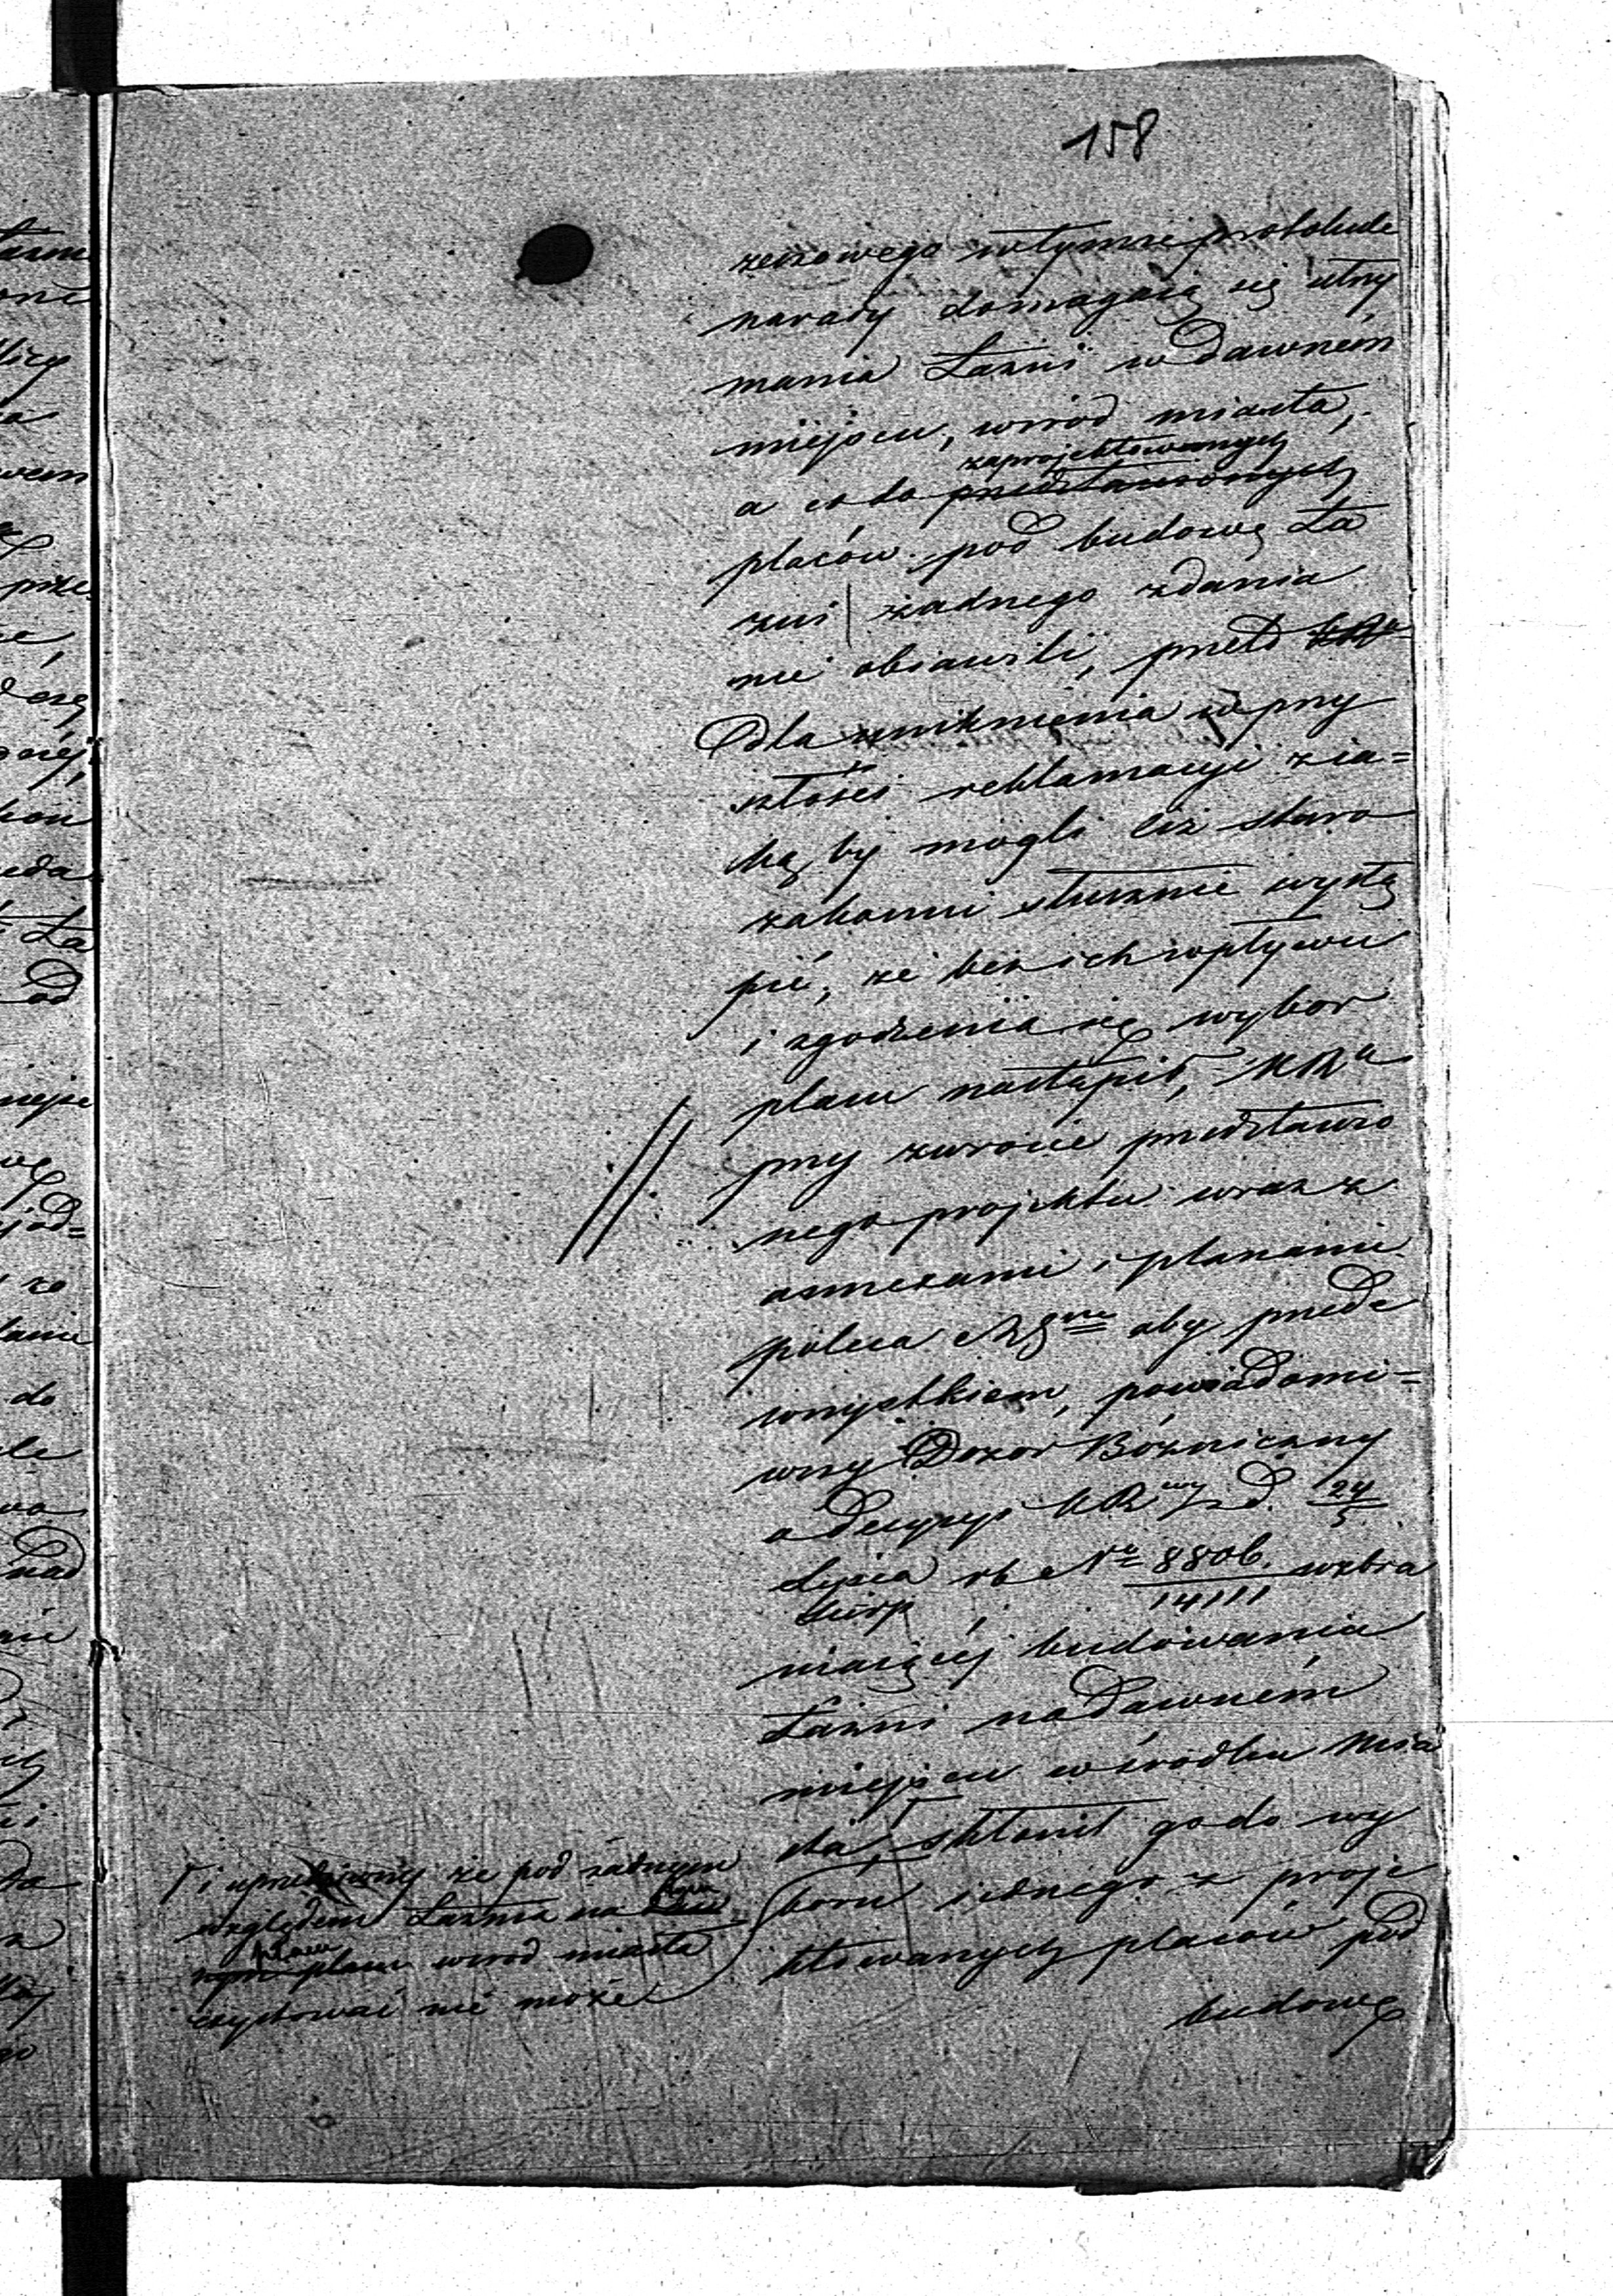 158
zewowego w tymże protokule
narady domagaią się utrzy
mania Łazni w dawném
miejscu, wśród miasta,
zaprojektowanych
a co do przedstawionych
placów pod budowę Ła
zni żadnego zdania
nie obiawili, przeto
dla uniknienia w przy
szłości reklamacyi z ia=
ką by mogli ciż staro
zakonni słusznie wystą
pić, że bez ich wpływu
i zgodzenia się wybor
placu nastąpił, KRa
przy zwrocie przedstawio
nego projektu wraz z
anszlagami i planami
poleca aby przede
wszystkiem, powiadomi=
wszy Dozor Bóżniczny
o decyzyi KR z d. 24/5
Lipca rb No 8806/14111 wzbra
Sierp
niaiącéj budowania
Łazni na dawném
miejscu w środku Mia
sta, skłonił go do wy
boru iednego z proje
ktowanych placów pod
budowę
i uprzedziwszy że pod żadnym
względem Łaznia na
placu wśród miasta
exystować nie może